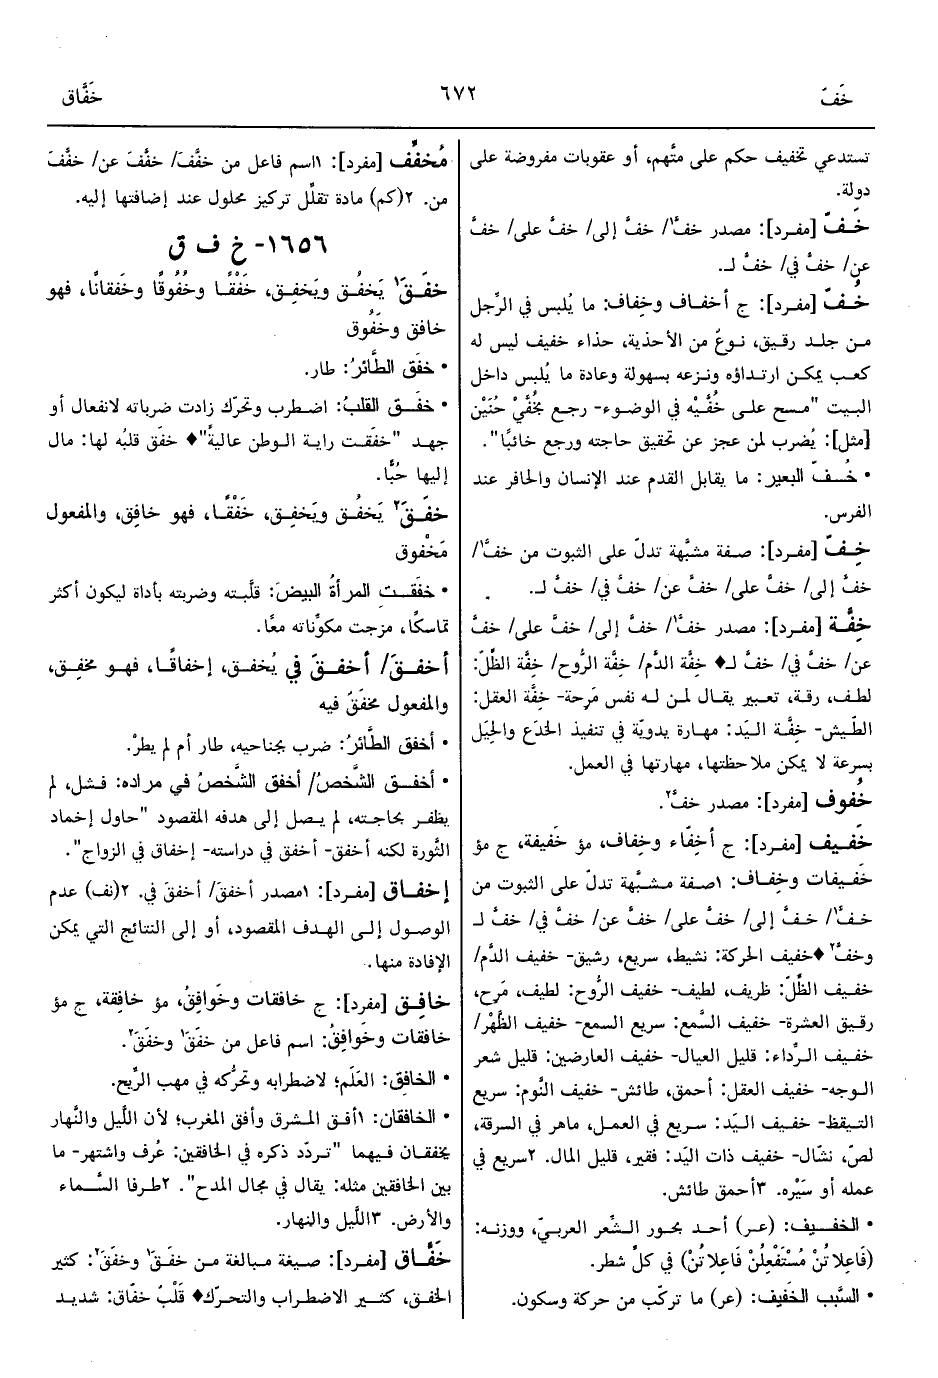 خَفّ
٦٧٢
خَفَّاق
تستدعي تخفيف حكم على متَّهم، أو عقوبات مفروضة على
دولة.
خَفّ [مفرد]: مصدر خفَّ١/ خفَّ إلى/ خفَّ على/ خفَّ
عن/ خفَّ في/ خفَّ لـ.
خُفّ [مفرد]: ج أخفاف وخِفاف: ما يُلبس في الرِّجل
من جلد رقيق، نوعٌ من الأحذية، حذاء خفيف ليس له
كعب يمكن ارتداؤه ونزعه بسهولة وعادة ما يُلبس داخل
البيت "مسح على خُفَّيْه في الوضوء- رجع بخُفَّيْ حُنَيْن
[مثل]: يُضرب لمن عجز عن تحقيق حاجته ورجع خائبًا".
• خُفّ البعير: ما يقابل القدم عند الإنسان والحافر عند
الفرس.
خِفّ [مفرد]: صفة مشبَّهة تدلّ على الثبوت من خفَّ١/
خفَّ إلى/ خفَّ على/ خفَّ عن/ خفَّ في/ خفَّ لـ.
خِفَّة [مفرد]: مصدر خفَّ١/ خفَّ إلى/ خفَّ على/ خفَّ
عن/ خفَّ في/ خفَّ لـ♦ خِفَّة الدَّم/ خِفَّة الرُّوح/ خِفَّة الظِّلّ:
لطف، رقة، تعبير يقال لمن له نفس مَرِحة- خِفَّة العقل:
الطَّيش- خِفَّة اليَد: مهارة يدويَّة في تنفيذ الخدَع والحِيَل
بسرعة لا يمكن ملاحظتها، مهارتها في العمل.
خُفوف [مفرد]: مصدر خفَّ٢.
خَفيف [مفرد]: ج أخِفّاء وخِفاف، مؤ خَفيفة، ج مؤ
خَفيفات وخِفاف: ١صفة مشبَّهة تدلّ على الثبوت من
خفَّ١/ خفَّ إلى/ خفَّ على/ خفَّ عن/ خفَّ في/ خفَّ لـ
وخفَّ٢ ♦خفيف الحركة: نشيط، سريع، رشيق- خفيف الدَّم/
خفيف الظِّلّ: ظريف، لطيف- خفيف الرُّوح: لطيف، مَرِح،
رقيق العشرة- خفيف السَّمع: سريع السمع- خفيف الظَّهْر/
خفيف الرِّداء: قليل العيال- خفيف العارضين: قليل شعر
الوجه- خفيف العقل: أحمق، طائش- خفيف النَّوم: سريع
التيقظ- خفيف اليَد: سريع في العمل، ماهر في السرقة،
لصّ، نشَّال- خفيف ذات اليَد: فقير، قليل المال. ٢سريع في
عمله أو سَيْره. ٣أحمق طائش.
• الخفيف: (عر) أحد بحور الشَّعر العربيّ، ووزنه:
(فَاعِلاتُنْ مُسْتَفْعِلُنْ فَاعِلاتُنْ) في كلِّ شطر.
• السَّبب الخَفيف: (عر) ما تركّب من حركة وسكون.
مُخفِّف [مفرد]: ١اسم فاعل من خفَّفَ/ خفَّفَ عن/ خفَّفَ
من. ٢(كم) مادة تقلِّل تركيز محلول عند إضافتها إليه.
١٦٥٦- خ ف ق
خفَقَ١ يَخفُق ويَخفِق، خَفْقًا وخُفُوقًا وخَفَقانًا، فهو
خافق وخَفُوق
• خفَق الطَّائرُ: طار.
• خفَق القلبُ: اضطرب وتحرَّك زادت ضرباته لانفعال أو
جهد "خفَقت راية الوطن عالية"♦ خفَق قلبُه لها: مال
إليها حُبًّا.
خفَقَ٢ يَخفُق ويَخفِق، خَفْقًا، فهو خافِق، والمفعول
مَخْفوق
• خفَقت المرأةُ البيضَ: قلَّبته وضربته بأداة ليكون أكثر
تماسكًا، مزجت مكوِّناته معًا.
أخفقَ/ أخفقَ في يُخفق، إخفاقًا، فهو مخفِق،
والمفعول مخفَقٌ فيه
• أخفق الطَّائرُ: ضرب بجناحيه، طار أم لم يطرْ.
• أخفق الشَّخصُ/ أخفق الشَّخصُ في مراده: فشل، لم
يظفر بحاجته، لم يصل إلى هدفه المقصود "حاول إخماد
الثَّورة لكنه أخفق- أخفق في دراسته- إخفاق في الزواج".
إخفاق [مفرد]: ١مصدر أخفقَ/ أخفقَ في. ٢(نف) عدم
الوصول إلى الهدف المقصود، أو إلى النتائج التي يمكن
الإفادة منها.
خافِق [مفرد]: ج خافقات وخَوافِقُ، مؤ خافِقة، ج مؤ
خافقات وخَوافِقُ: اسم فاعل من خفَقَ١ وخفَقَ٢.
• الخافِق: العَلَم؛ لاضطرابه وتحرُّكه في مهب الرِّيح.
• الخافقان: ١أفق المشرق وأفق المغرب؛ لأن اللَّيل والنَّهار
يخفقان فيهما "تردّد ذكره في الخافقين: عُرف واشتهر- ما
بين الخافقين مثله: يقال في مجال المدح". ٢طرفا السَّماء
والأرض. ٣اللَّيل والنهار.
خَفَّاق [مفرد]: صيغة مبالغة من خفَقَ١ وخفَقَ٢: كثير
الخفق، كثير الاضطراب والتحرّك♦ قَلْبٌ خفّاق: شديد